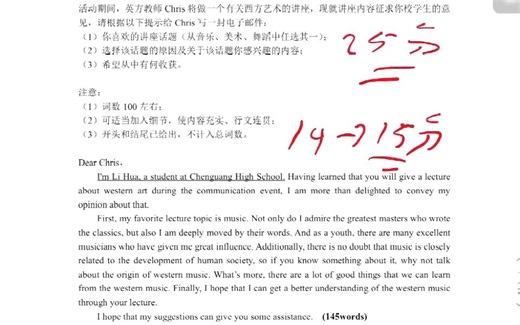 活动期间，英方教师 Chris 将做一个有关西方艺术的讲座，现就讲座内容征求你校学生的意
见，请根据以下提示给 Chris 写一封电子邮件：
（1）你喜欢的讲座话题（从音乐、美术、舞蹈中任选其一）；
（2）选择该话题的原因及关于该话题你感兴趣的内容；
（3）希望从中有何收获。
25分
注意：
（1）词数 100 左右；
（2）可适当加入细节，使内容充实、行文连贯；
（3）开头和结尾已给出，不计入总词数。
14→15分
Dear Chris,
I'm Li Hua, a student at Chenguang High School. Having learned that you will give a lecture
about western art during the communication event, I am more than delighted to convey my
opinion about that.
First, my favorite lecture topic is music. Not only do I admire the greatest masters who wrote
the classics, but also I am deeply moved by their words. And as a youth, there are many excellent
musicians who have given me great influence. Additionally, there is no doubt that music is closely
related to the development of human society, so if you know something about it, why not talk
about the origin of western music. What's more, there are a lot of good things that we can learn
from the western music. Finally, I hope that I can get a better understanding of the western music
through your lecture.
I hope that my suggestions can give you some assistance. (145words)